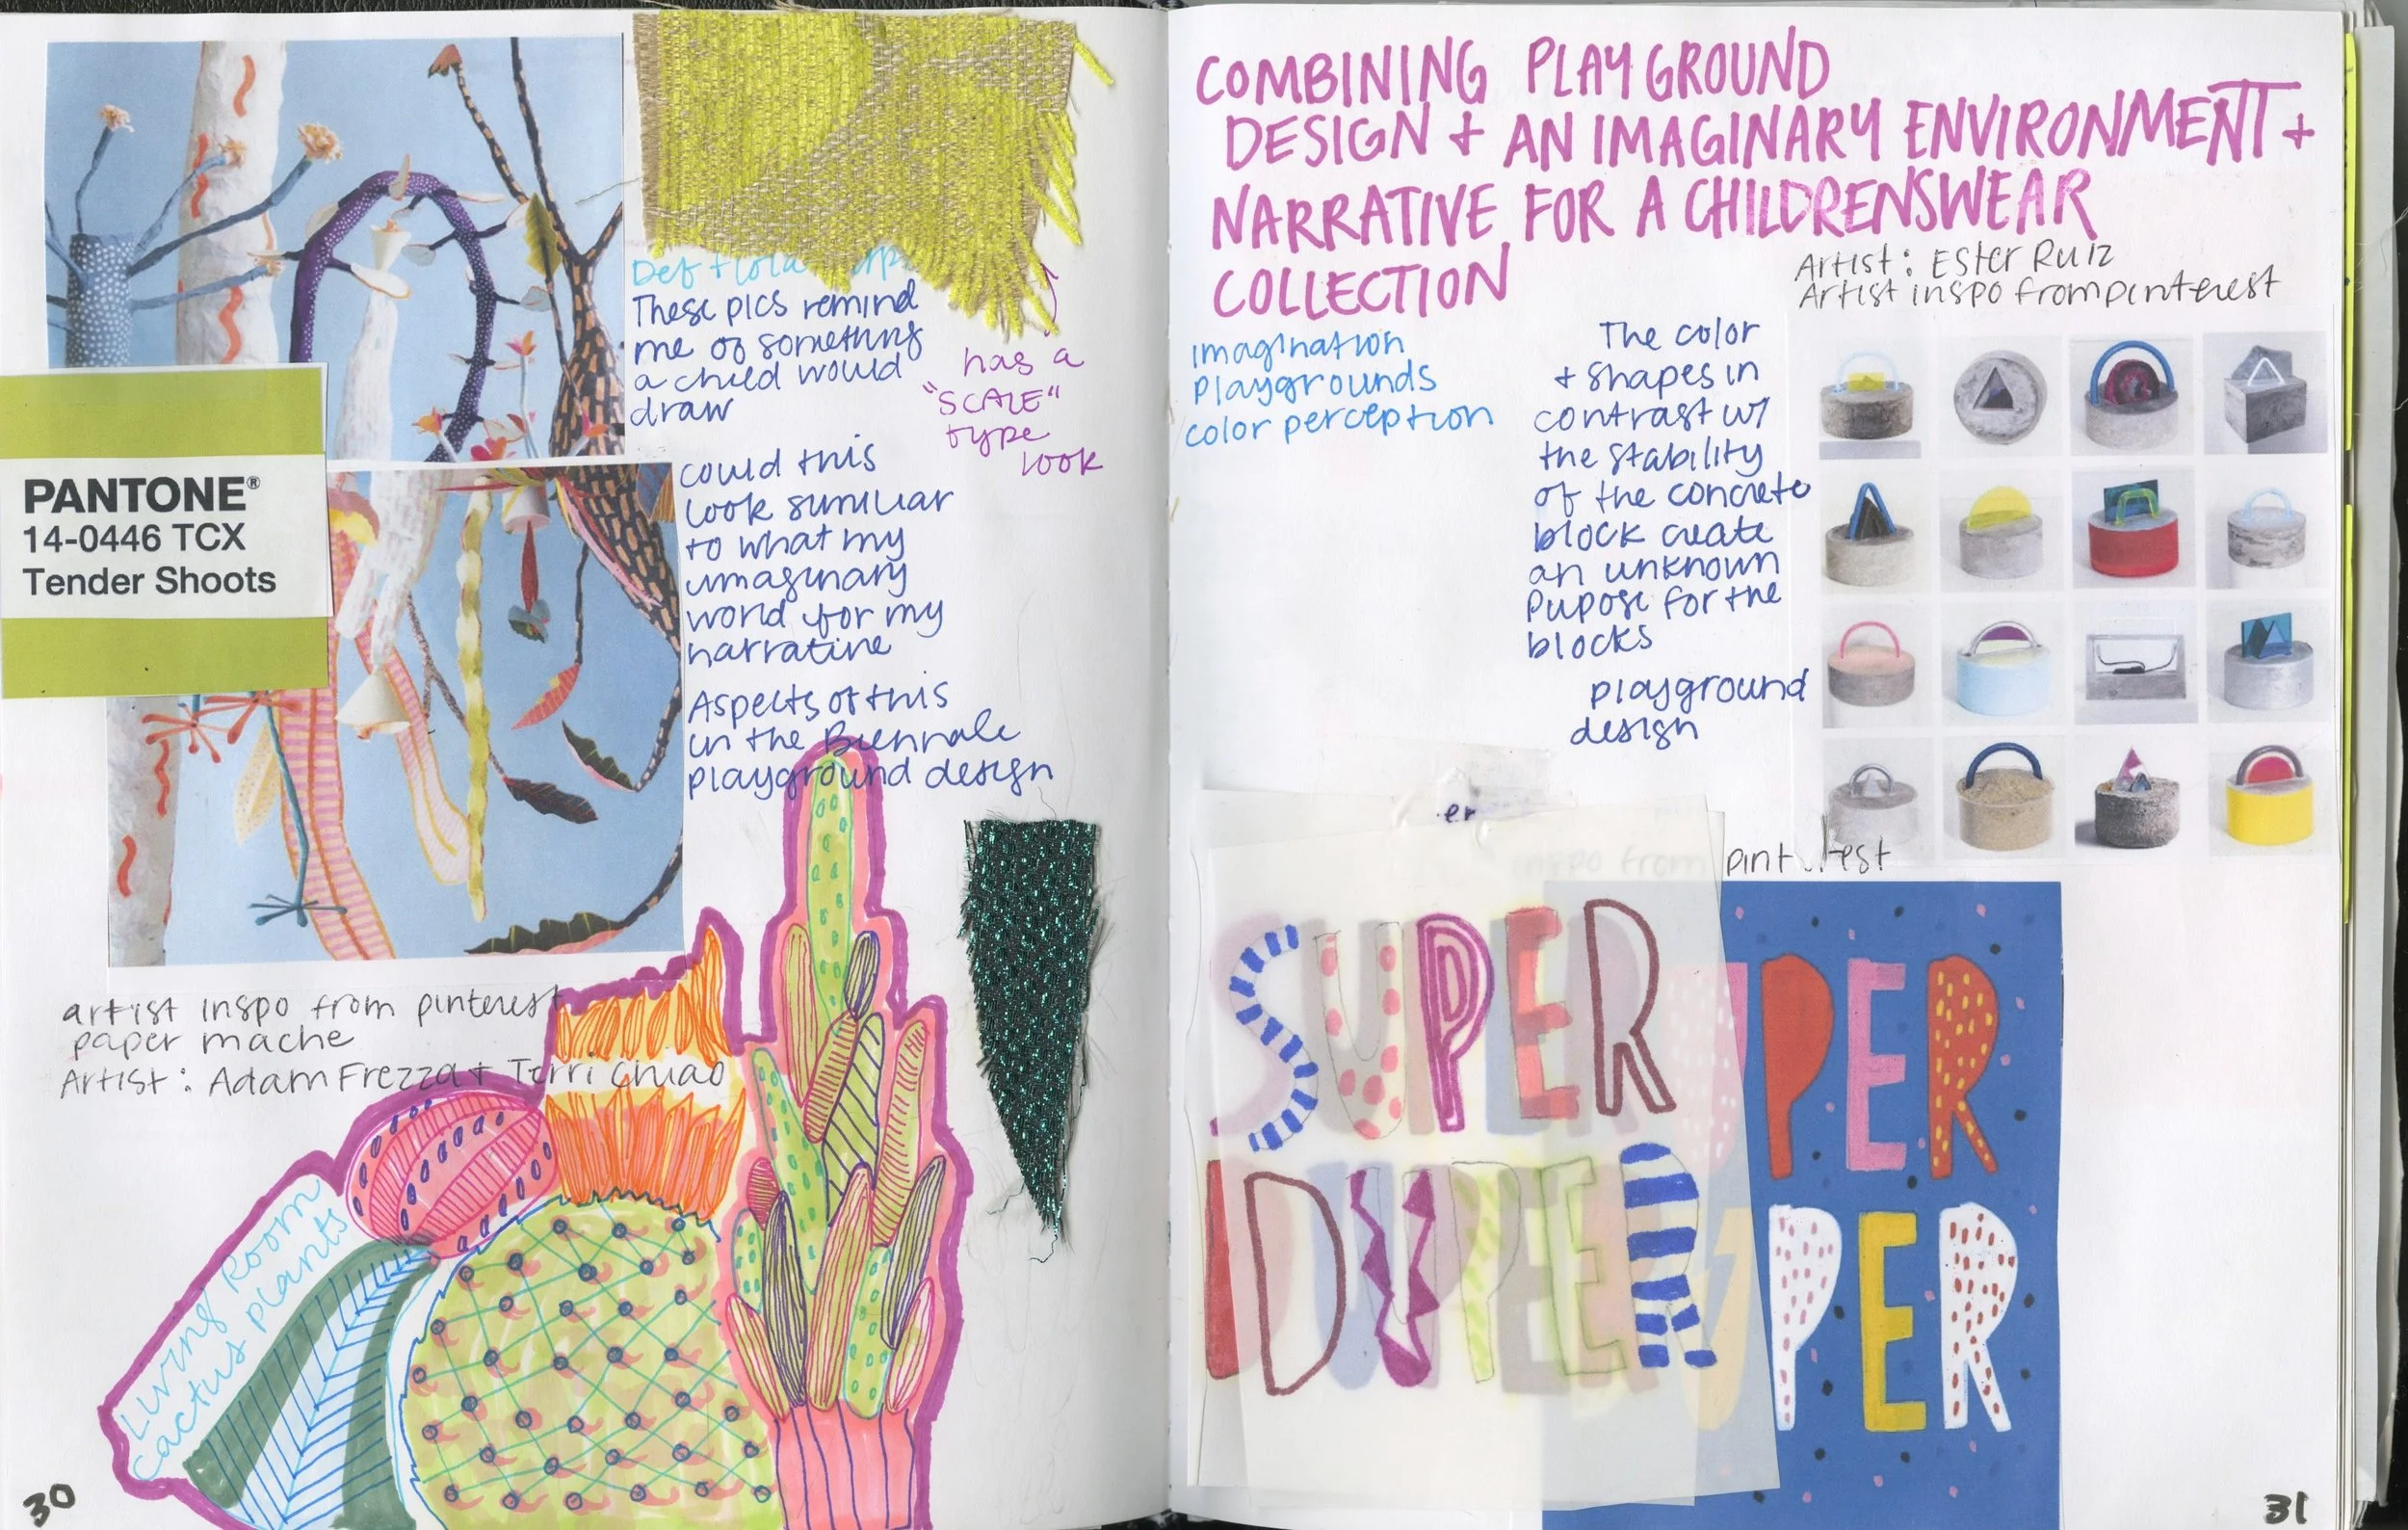 PANTONE®
14-0446 TCX
Tender Shoots
These pics remind
me of something
a child would
draw
has a
"SCALE"
type
look
could this
look similiar
to what my
imaginary
world for my
narrative
Aspects of this
in the Biennale
playground design
artist inspo from pinterest
paper mache
Artist: Adam Frezza + Terri Chiao
Living Room
cactus plants
30
COMBINING PLAYGROUND
DESIGN + AN IMAGINARY ENVIRONMENT +
NARRATIVE FOR A CHILDRENSWEAR
COLLECTION
Artist: Ester Ruiz
Artist inspo from pinterest
imagination
playgrounds
color perception
The color
+ shapes in
contrast w/
the stability
of the concrete
block create
an unknown
Pupose for the
blocks
playground
design
er
inspo from pinterest
SUPER
DUPER
PER
PER
31